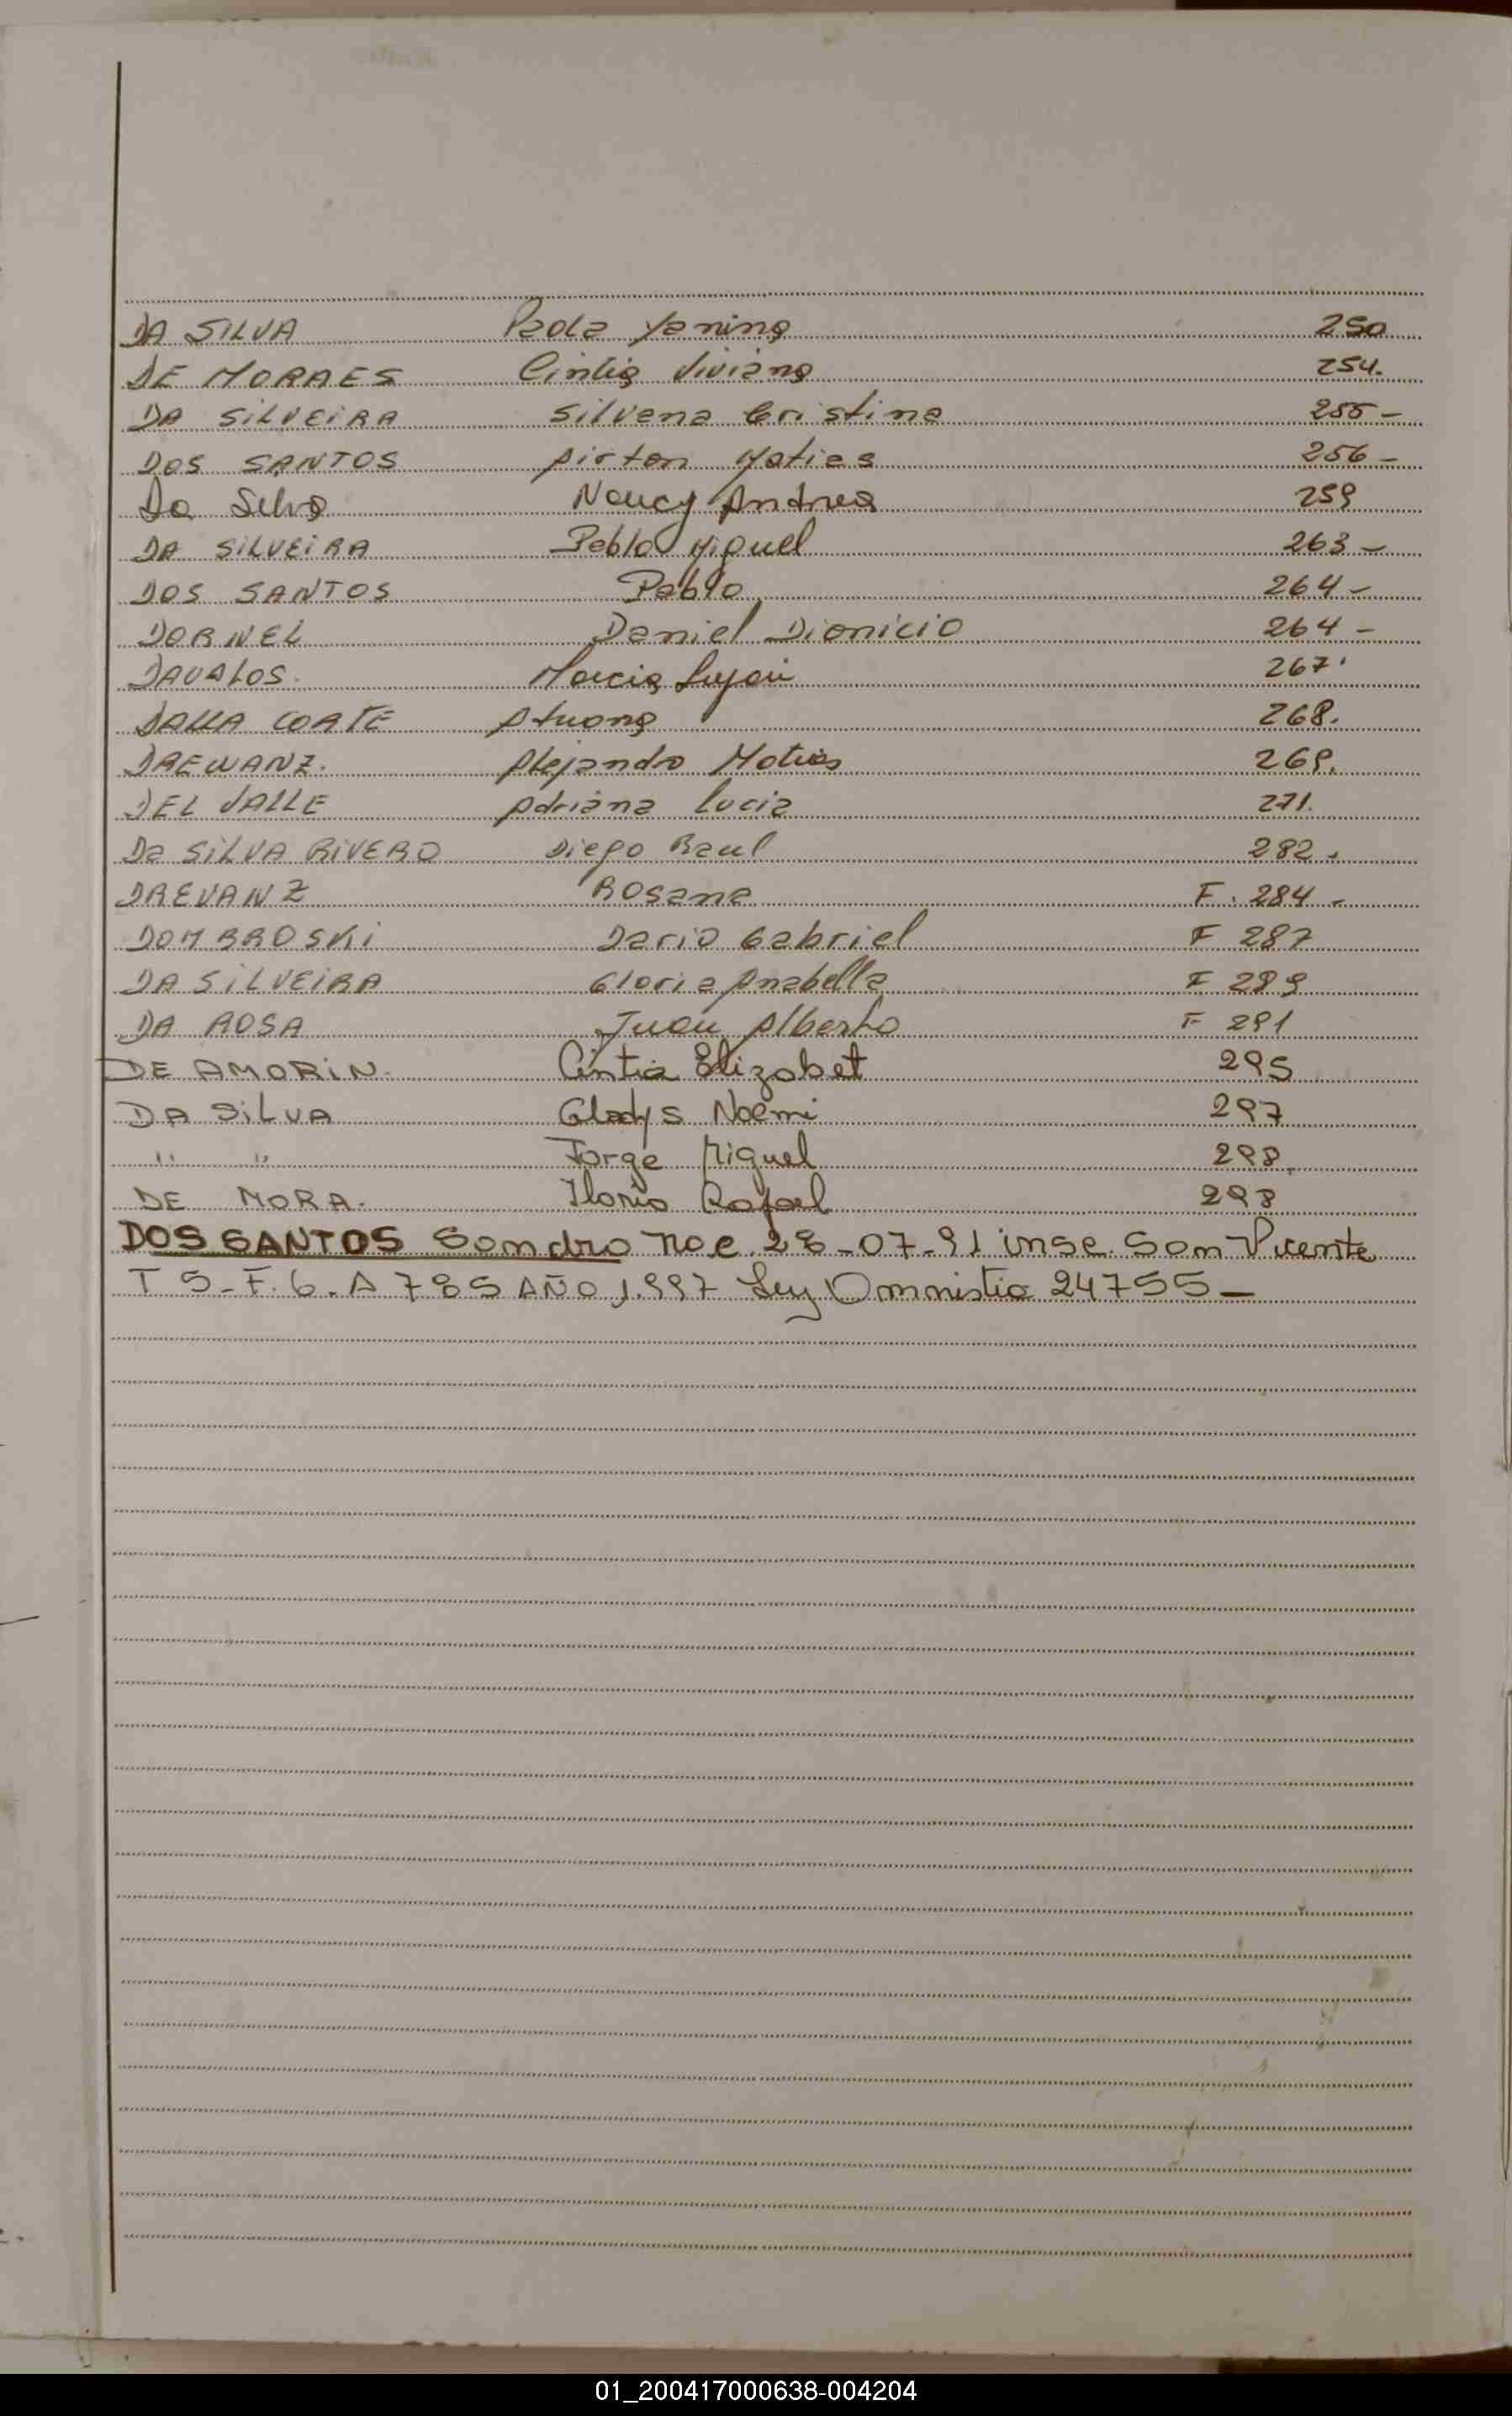 DA SILVA Paola Yanina 250
DE MORAES Cintia Viviana 254.
DA SILVEIRA Silvana Cristina 255-
DOS SANTOS Airton Matias 256-
Da Silva Nancy Andrea 259
DA SILVEIRA Pablo Miguel 263-
DOS SANTOS Pablo 264-
DORNEL Daniel Dionicio 264-
DAVALOS. Marcia Lujan 267.
DALLA CORTE 268.
DREWANZ. Alejandro Matias 269.
DEL VALLE Adriana Lucia 271.
Da SILVA RIVERO Diego Raul 282.
DREVANZ Rosana F. 284-
DOMBROSKi Dario Gabriel F 287
DA SILVEIRA Gloria Anabella F 289
DA ROSA Juan Alberto F 291
DE AMORIN. Cintia Elizabet 295
DA SILVA Gladys Noemi 297
" " Jorge Miguel 298.
DE MORA. Ilario Rafael 298
DOS SANTOS Sandro nac. 28-07-91 insc. San Vicente
T 5-F.6.A 785 AÑO 1.997 Ley Amnistia 24755-
01_200417000638-004204